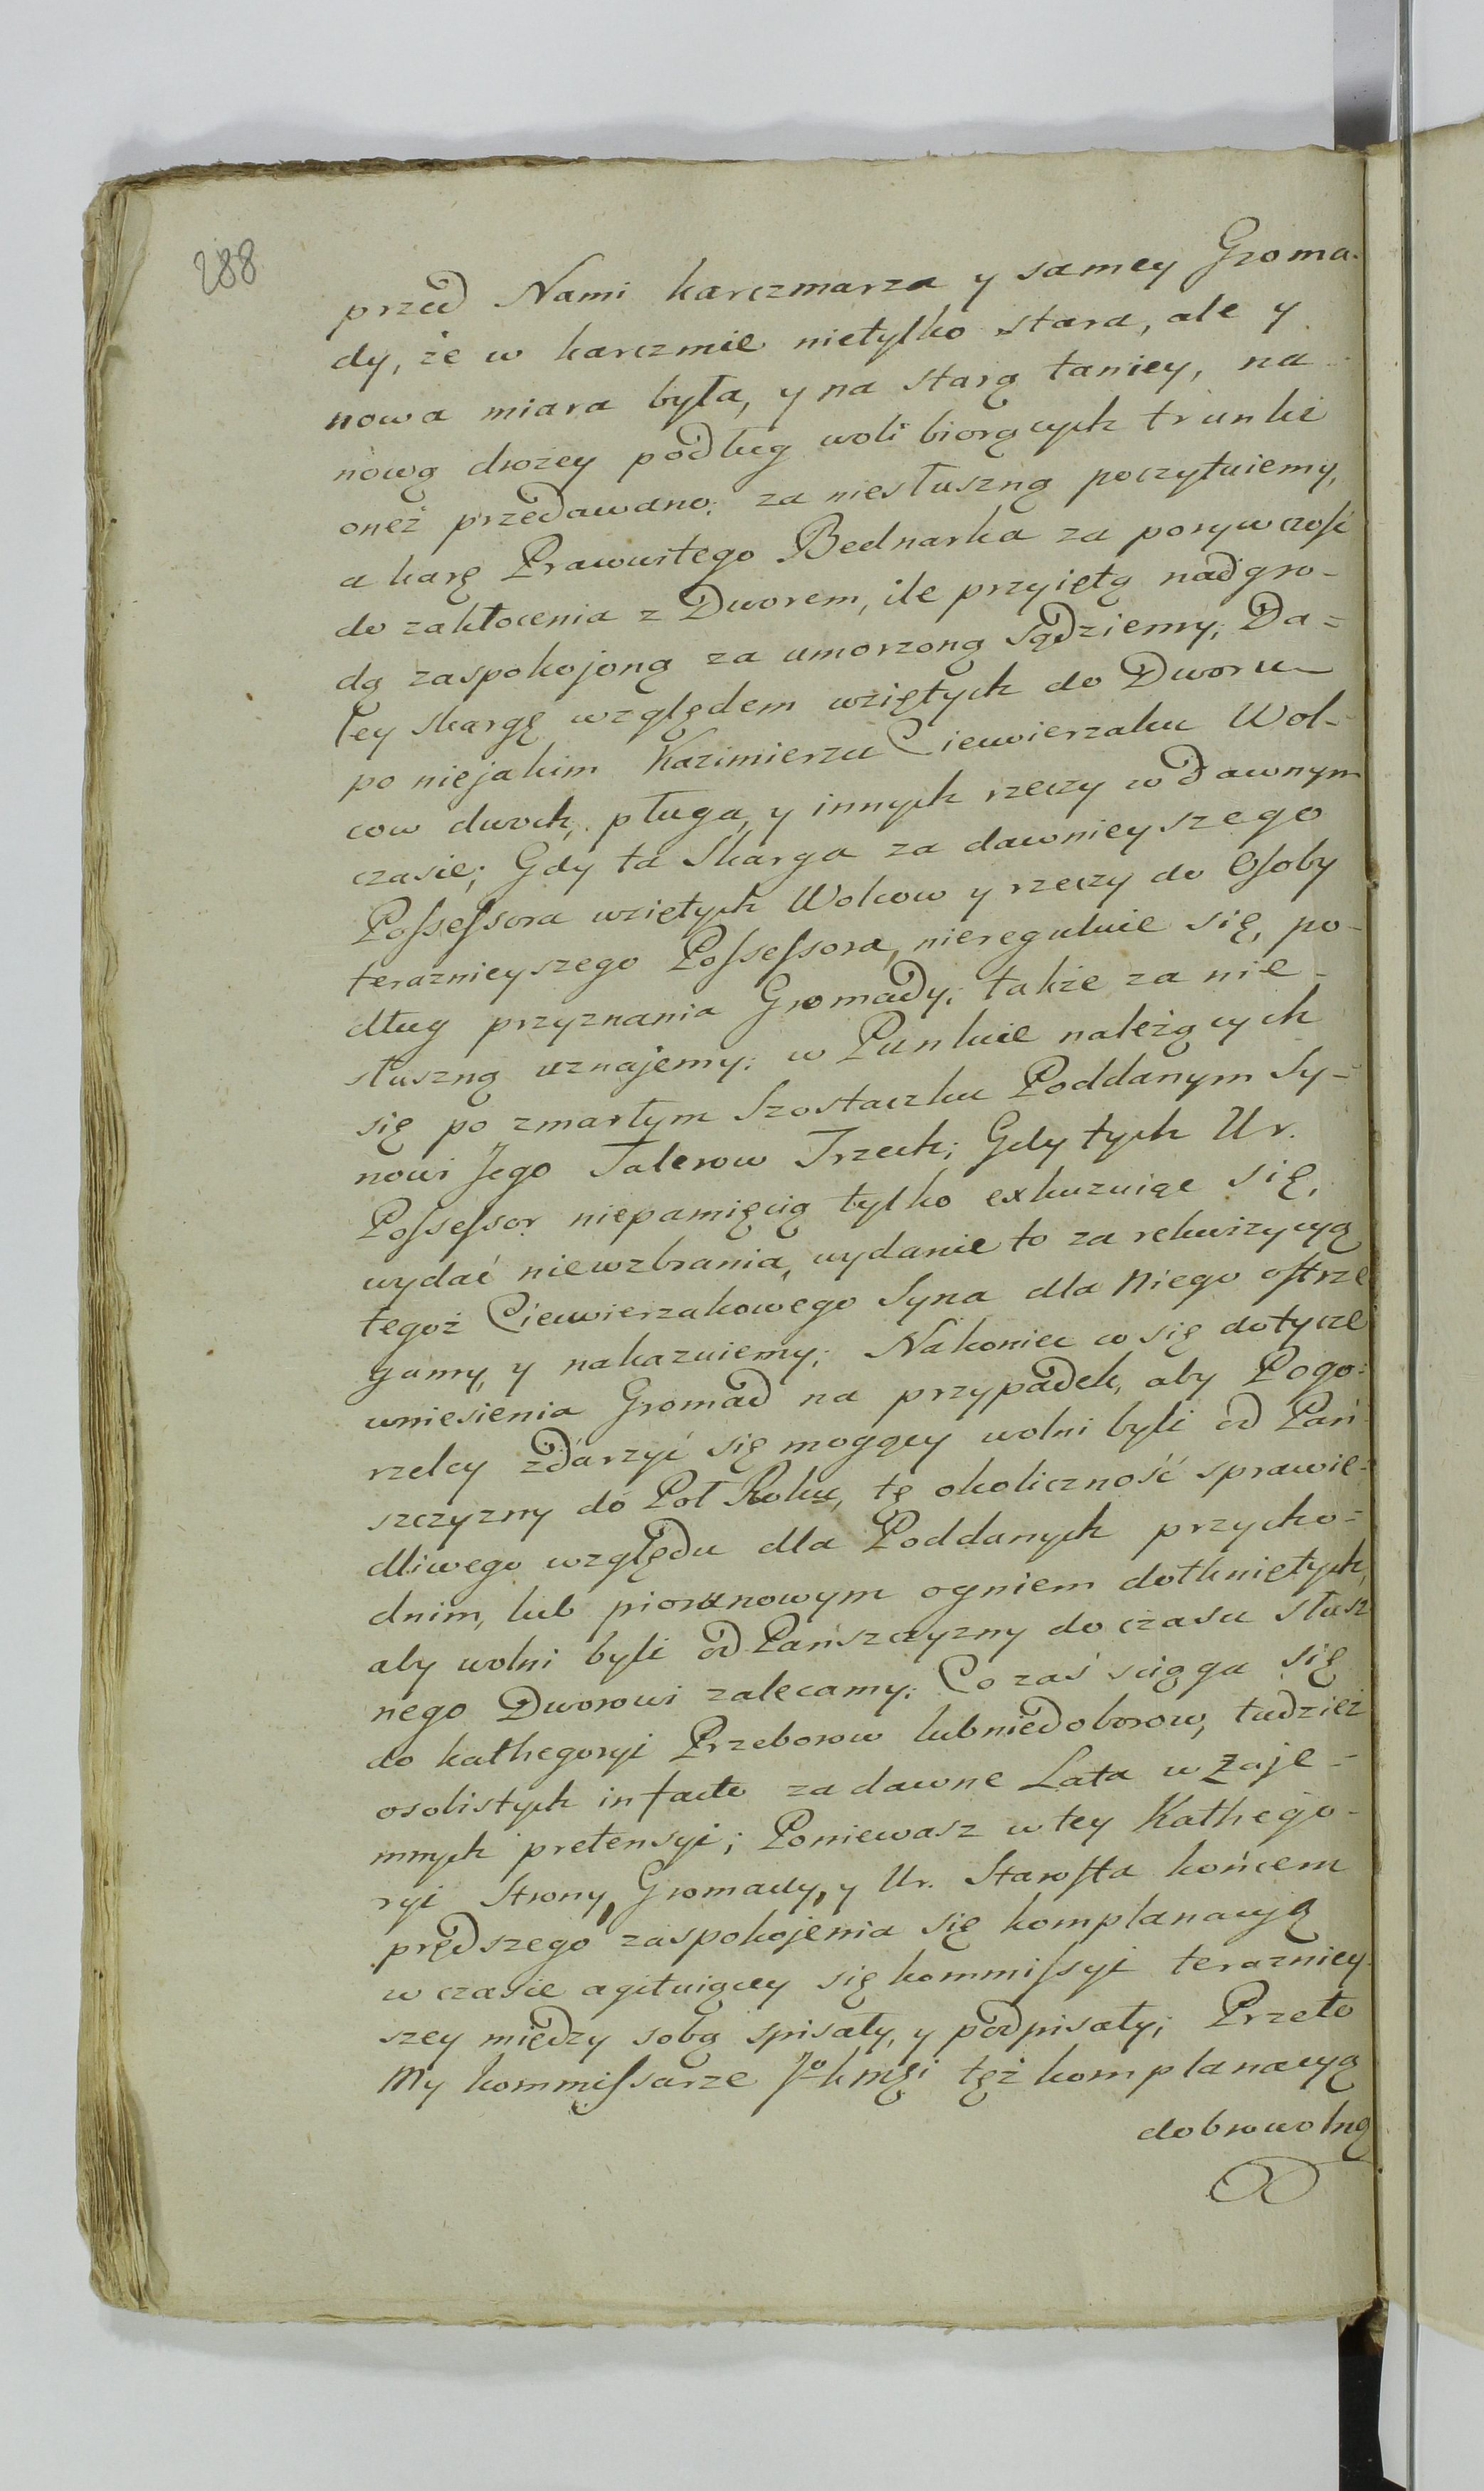 288
przed Nami karczmarza y samey Groma-
dy, że w karczmie nietylko stara, ale y
nowa miara była, y na starą taniey, na
nową drożey podług woli biorących trunki
oneż przedawano; za niesłuszną poczytuiemy,
a karę Prawustego Bednarka za porywczość
do zakłocenia z Dworem, ile przyiętą nadgro-
dą zaspokojoną za umorzoną sądziemy; Da=
ley skargę względem wziętych do Dworu
po niejakim Kazimierzu Ciewierzaku Wol-
cow dwoch, pługa, y innych rzeczy w dawnym
czasie; Gdy ta Skarga za dawnieyszego
Possessora wziętych Wolcow y rzeczy do Osoby
teraznieyszego Possessora niereguluie się, po-
dług przyznania Gromady; także za nie-
słuszną uznajemy; w Punkcie należących
się po zmarłym Szostaczku Poddanym Sy-
nowi Jego Talerow Trzech; Gdy tych Ur.
Possessor niepamięcią tylko exkuzuiąc się,
wydać niewzbrania, wydanie to za rekwizycyą
tegoż Ciewierzakowego Syna dla Niego ostrze
gamy, y nakazuiemy; Nakoniec co się dotycze
wniesienia Gromad na przypadek, aby Pogo=
rzelcy zdarzyć się mogący wolni byli od Pań
szczyzny do Poł Roku, tę okoliczność sprawie-
dliwego względu dla Poddanych przycho=
dnim, lub piorunowym ogniem dotkniętych,
aby wolni byli od Pańszczyzny do czasu słusz
nego Dworowi zalecamy; Co zaś sciąga się
do kathegoryi Przeborow lub niedoborow, tudzież
osobistych in facto za dawne Lata w zaje-
mnych pretensyi; Poniewasz w tey Kathego-
ryi Strony, Gromady, y Ur. Starosta końcem
prędszego zaspokojenia się komplanacyą
w czasie agituiącey się kommissyi terazniey
szey między sobą spisały, y podpisały; Przeto
My kommissarze JoKMci tęż komplanacyą
dobrowolną